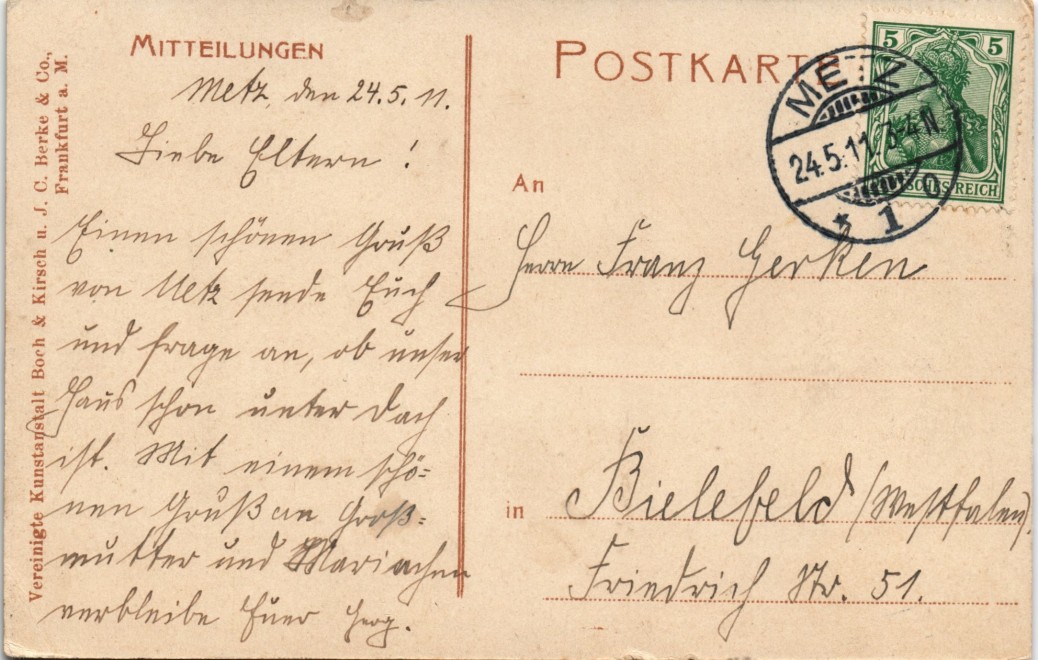 MITTEILUNGEN
Metz, den 24.5.11.
Liebe Eltern!
Einen schönen Gruß
von Metz sende Euch
und frage an, ob unser
Haus schon unter Dach
ist. Mit einem schö=
nen Gruß an Groß=
mutter und Mariachen
verbleibe Euer
Vereinigte Kunstanstalt Boch & Kirsch u. J. C. Berke & Co.,
Frankfurt a. M.
POSTKARTE
5 5
SCHES REICH
METZ
24.5.11. 3-4 N
* 1 o
An
Herrn Franz Gerken
in Bielefeld (Westfalen).
Friedrich Str. 51.